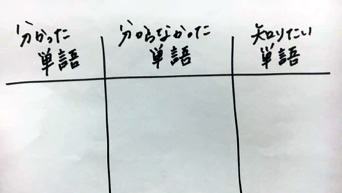 分かった
単語
分からなかった
単語
知りたい
単語